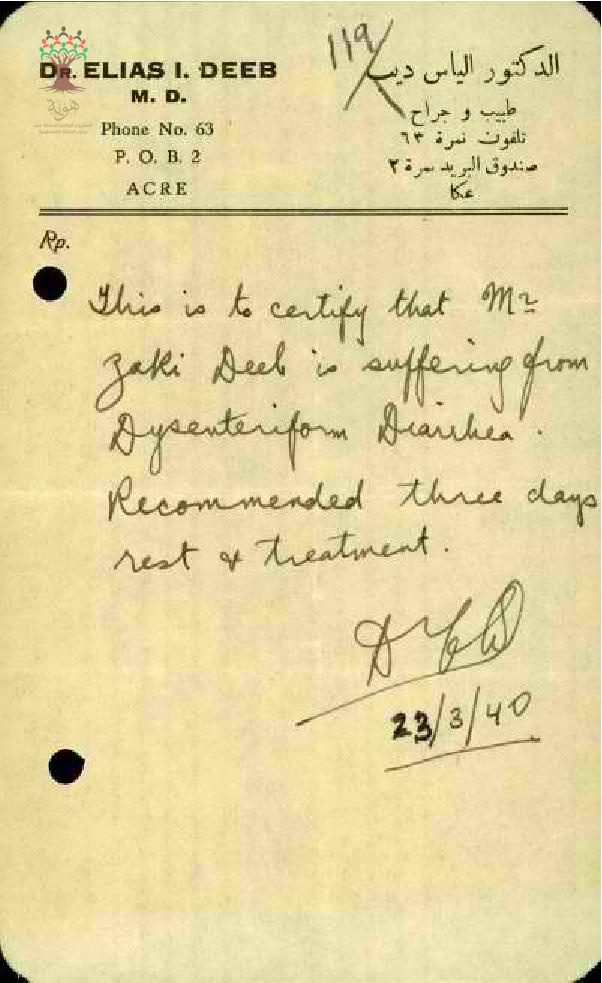 119
DR. ELIAS I. DEEB
M. D.
Phone No. 63
P. O. B. 2
ACRE
الدكتور الياس ديب
طبيب و جراح
تلفون نمرة ٦٣
صندوق البريد نمرة ٢
عكا
Rp.
This is to certify that Mr
Zaki Deeb is suffering from
Dysenteriform Diarrhea.
Recommended three days
rest & treatment.
23/3/40
هوية